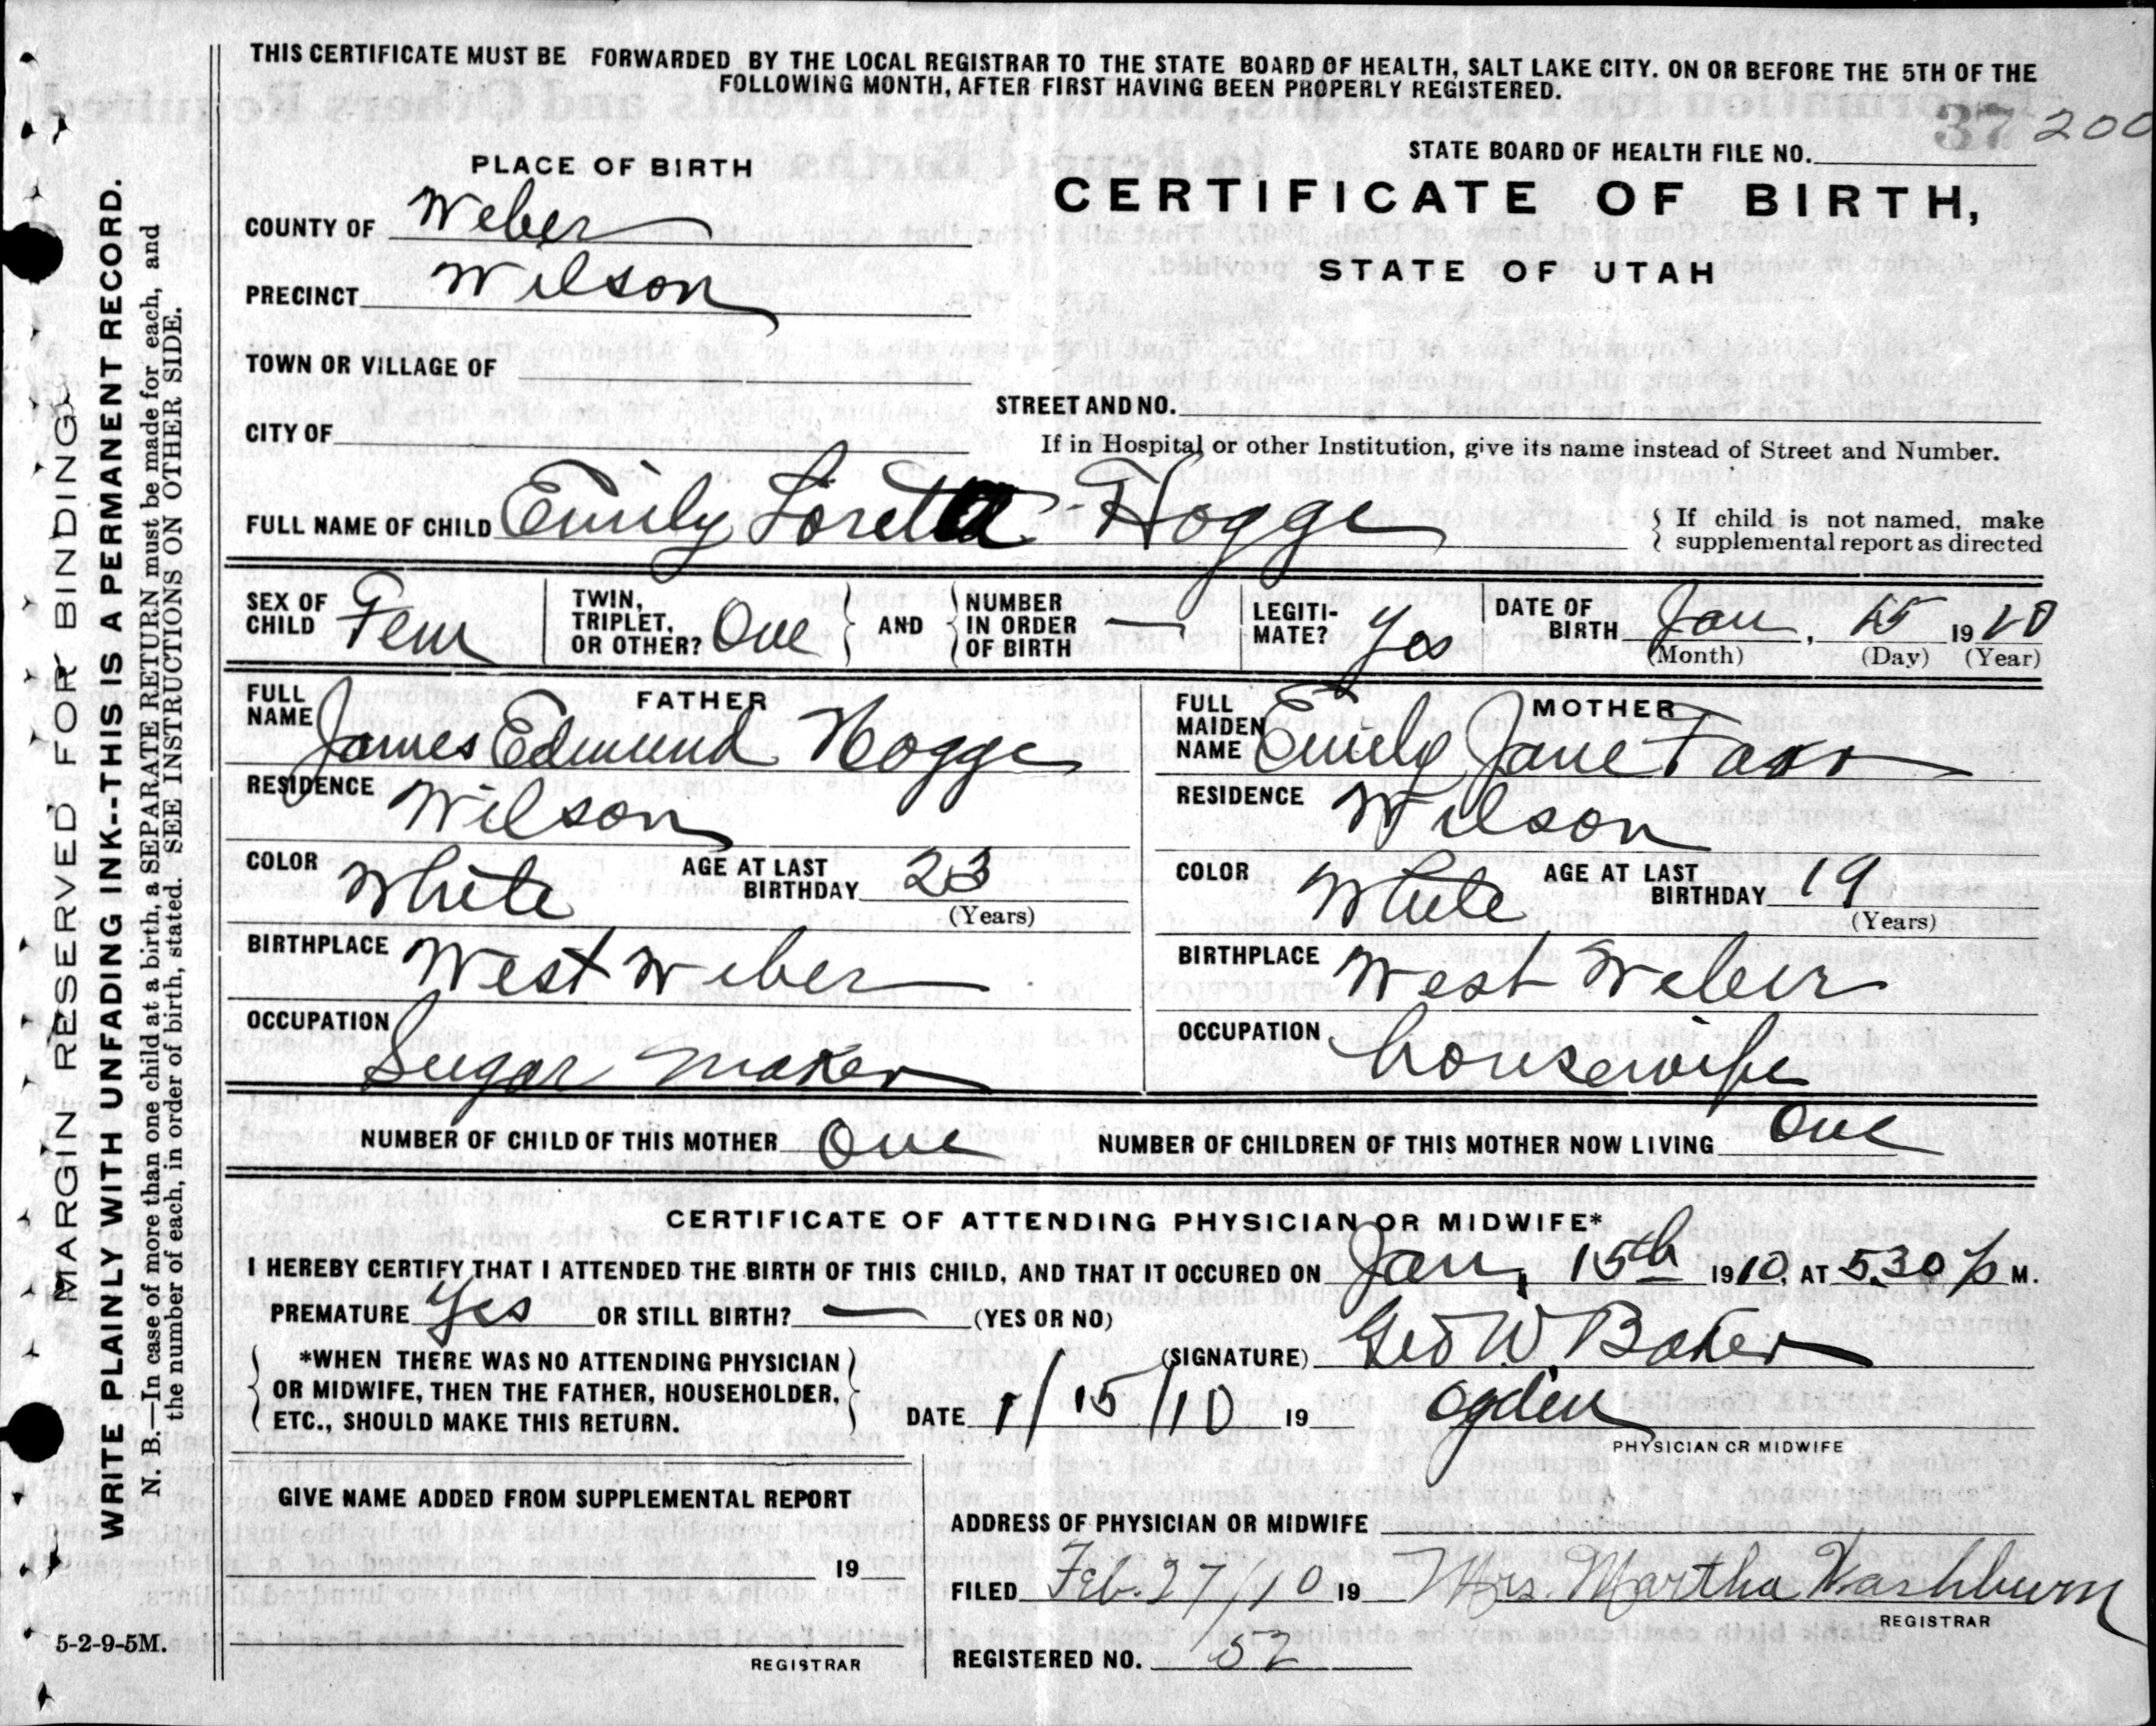 THIS CERTIFICATE MUST BE FORWARDED BY THE LOCAL REGISTRAR TO THE STATE BOARD OF HEALTH, SALT LAKE CITY. ON OR BEFORE THE 5TH OF THE
FOLLOWING MONTH, AFTER FIRST HAVING BEEN PROPERLY REGISTERED.
37 200
STATE BOARD OF HEALTH FILE NO.
PLACE OF BIRTH
CERTIFICATE OF BIRTH,
STATE OF UTAH
COUNTY OF Weber
PRECINCT Wilson
TOWN OR VILLAGE OF
STREET AND NO.
CITY OF
If in Hospital or other Institution, give its name instead of Street and Number.
FULL NAME OF CHILD Emily Loretta Hogge
{ If child is not named, make
supplemental report as directed
SEX OF CHILD Fem
TWIN, TRIPLET, OR OTHER? One } AND { NUMBER IN ORDER OF BIRTH —
LEGITI-MATE? Yes
DATE OF BIRTH Jan, 15 1910
(Month) (Day) (Year)
FATHER
FULL NAME James Edmund Hogge
RESIDENCE Wilson
COLOR White AGE AT LAST BIRTHDAY 23
(Years)
BIRTHPLACE West Weber
OCCUPATION Sugar maker
MOTHER
FULL MAIDEN NAME Emily Jane Farr
RESIDENCE Wilson
COLOR White AGE AT LAST BIRTHDAY 19
(Years)
BIRTHPLACE West Weber
OCCUPATION housewife
NUMBER OF CHILD OF THIS MOTHER One NUMBER OF CHILDREN OF THIS MOTHER NOW LIVING One
CERTIFICATE OF ATTENDING PHYSICIAN OR MIDWIFE*
I HEREBY CERTIFY THAT I ATTENDED THE BIRTH OF THIS CHILD, AND THAT IT OCCURED ON Jan, 15th 1910, AT 5.30 P M.
PREMATURE Yes OR STILL BIRTH? — (YES OR NO)
*WHEN THERE WAS NO ATTENDING PHYSICIAN
OR MIDWIFE, THEN THE FATHER, HOUSEHOLDER,
ETC., SHOULD MAKE THIS RETURN.
(SIGNATURE) Geo W. Baker
DATE 1/15/10 19 Ogden
PHYSICIAN OR MIDWIFE
GIVE NAME ADDED FROM SUPPLEMENTAL REPORT
19
REGISTRAR
ADDRESS OF PHYSICIAN OR MIDWIFE
FILED Feb. 27/10 19 Mrs. Martha Washburn
REGISTRAR
REGISTERED NO. 52
5-2-9-5M.
MARGIN RESERVED FOR BINDING
WRITE PLAINLY WITH UNFADING INK--THIS IS A PERMANENT RECORD.
N. B.—In case of more than one child at a birth, a SEPARATE RETURN must be made for each, and
the number of each, in order of birth, stated. SEE INSTRUCTIONS ON OTHER SIDE.